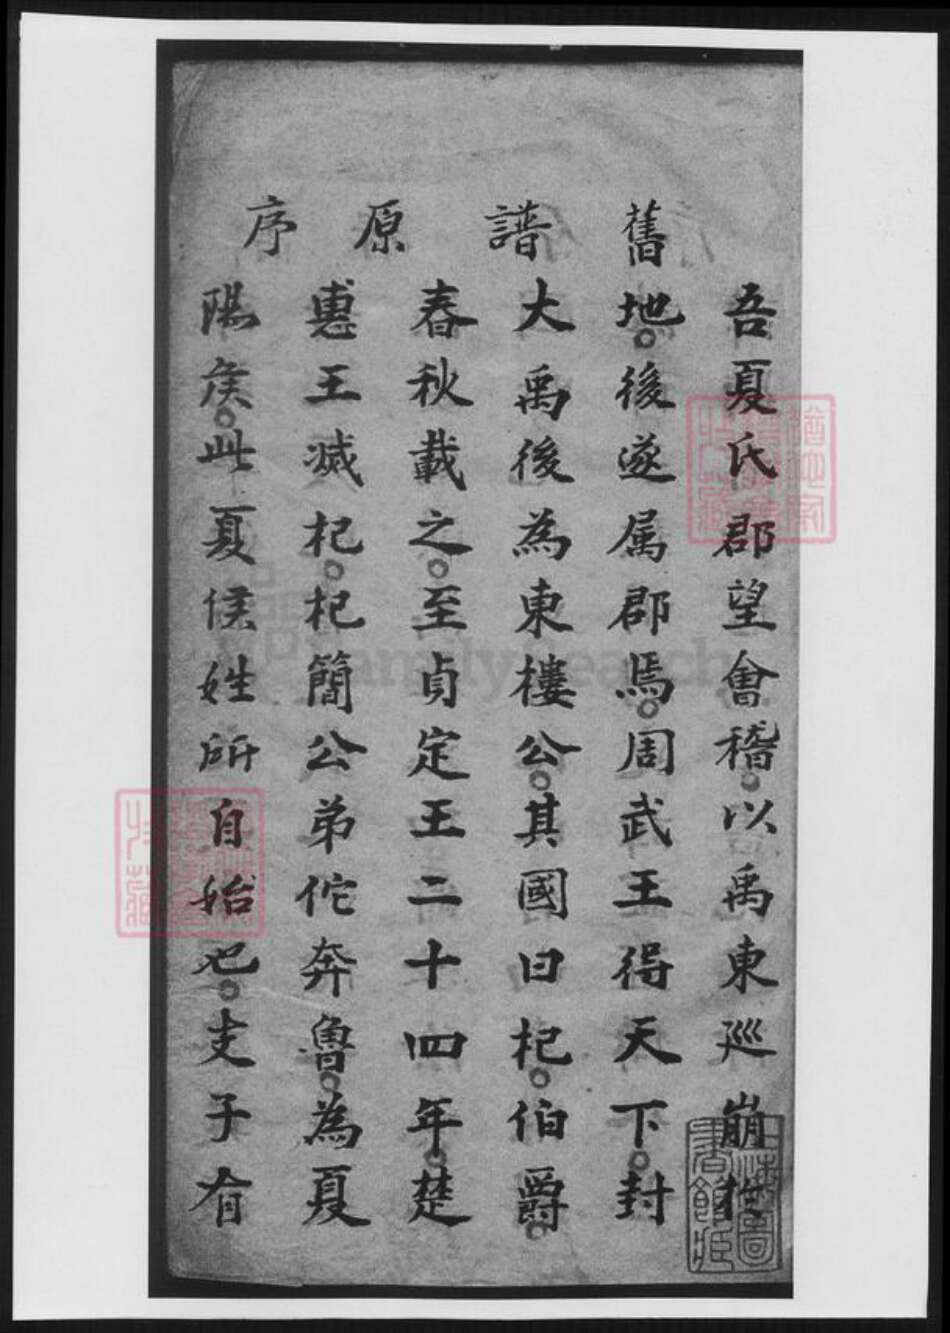 舊譜原序
吾夏氏郡望會稽。以禹東巡崩於
地。後遂属郡焉。周武王得天下。封
大禹後為東樓公。其國曰杞。伯爵。
春秋載之。至貞定王二十四年。楚
惠王滅杞。杞簡公弟佗奔魯。為夏
陽侯。此夏侯姓所自始也。支子有